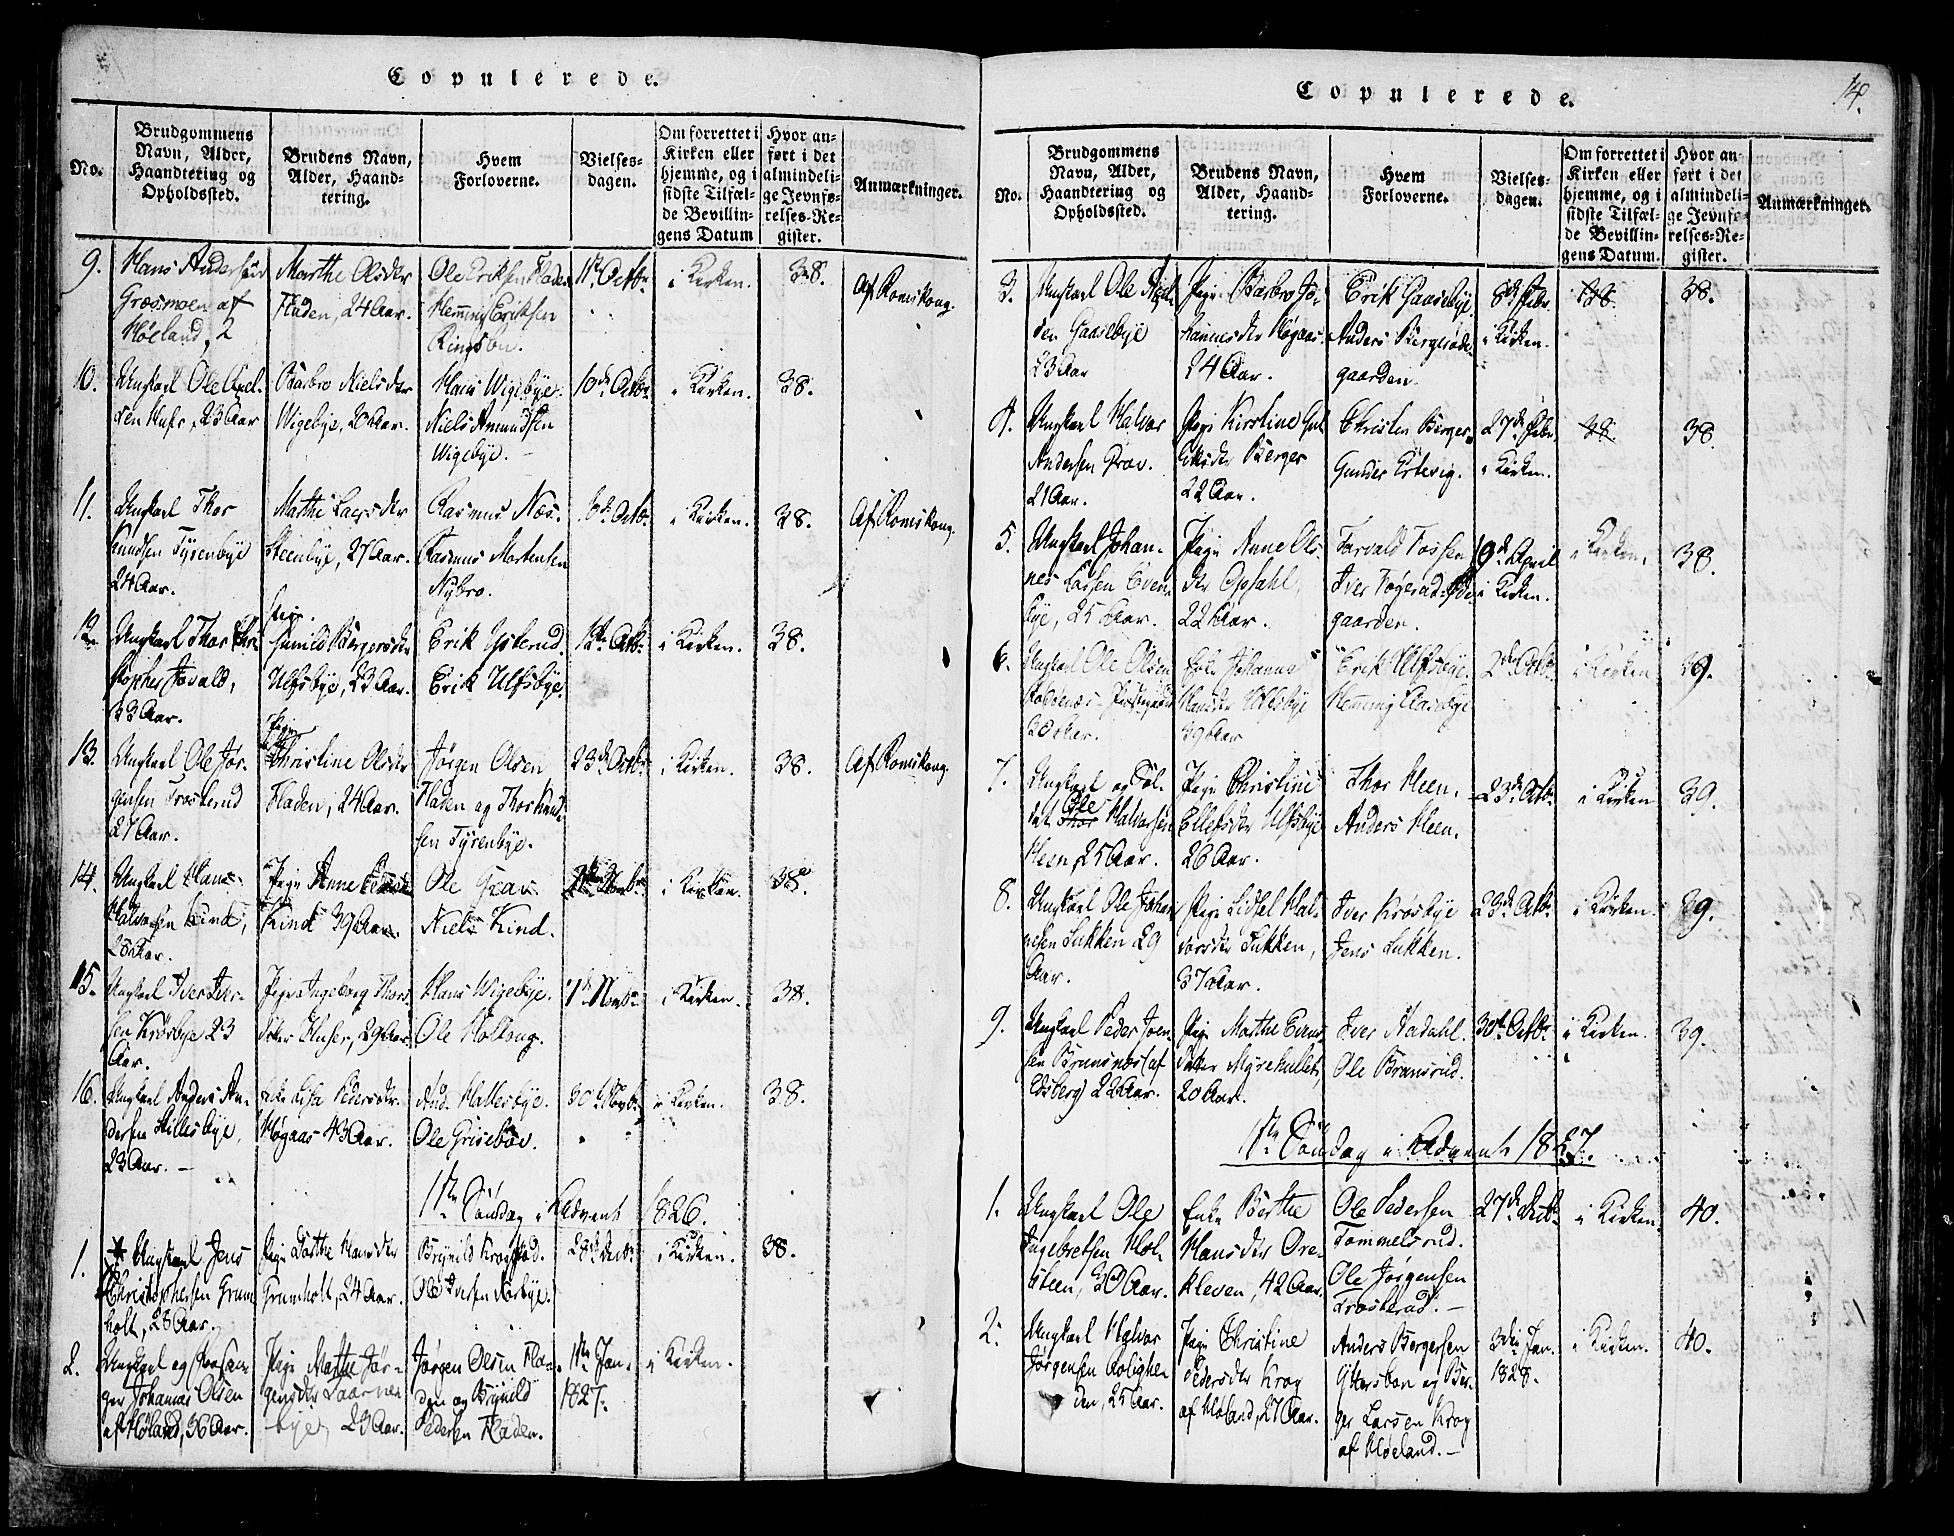 Copulerede.
No.
Brudgommens
Navn, Alder,
Haandtering og
Opholdssted.
Brudens Navn,
Alder, Haand-
tering.
Hvem
Forloverne.
Vielses-
dagen.
Om forrettet i
Kirken eller
hjemme, og i
sidste Tilfæl-
de Bevillin-
gens Datum
Hvor an-
ført i det
almindeli-
ge Jevnfø-
relses-Re-
gister.
Anmærkninger.
9.
Hans Andersen
Græsmoen af
Høeland,
Marthe Olsdr
Fladen, 24 Aar.
Ole Eriksen Fladen
Hemming Eriksen
11te Octbr
i Kirken.
38.
Af Romskoug.
10.
Ungkarl Ole Axel-
sen Huser, 23 Aar
Barbro Nielsdr
Wigebye, 20 Aar.
Hans Wigebye.
Niels Amundsen
Wigebye.
10de Octbr
i Kirken.
38.
11.
Ungkarl Thor
Knudsen Tyrenbye
24 Aar.
Marthe Larsdr
Steenbye, 27 Aar.
Rasmus Næs.
Rasmus Mortensen
Nybro.
i Kirken.
38.
Af Romskoug.
12.
Ungkarl Thor Chri-
stopher Jovald,
33 Aar.
Pige.
Gunild Børgersdr
Ulfsbye, 23 Aar.
Erik Ysterud.
Erik Ulfsbye.
12te Octbr
i Kirken.
38.
13.
Ungkarl Ole Jør-
gensen Trosterud
27 Aar.
Pige
Christine Olsdr
Fladen, 24 Aar.
Jørgen Olsen
Fladen og Thor Knud-
sen Tyrenbye.
23de Octbr
i Kirken.
38.
Af Romskoug.
14.
Ungkarl Hans
Halvorsen Kind,
28 Aar.
Pige Anne
Kind 39 Aar.
Ole Grav
Niels Kind.
i Kirken.
38.
15.
Ungkarl Iver Iver-
sen Krosbye 23
Aar.
Pige Ingeborg Thors-
dater Huser, 29 Aar.
Hans Wigebye.
Ole Holtoug.
7de Novbr
i Kirken.
38.
16.
Ungkarl Anders An-
dersen Hillesbye,
23 Aar.
Enke Lisa Pedersdr
Høgaas 43 Aar.
And. Hallesbye.
Ole Grisebøe.
30te Novbr
i Kirken.
38.
1ste Søndag i Advent 1826.
1.
Ungkarl Jens
Christophersen Grum-
holt, 28 Aar.
Pige Dorthe Hansdr
Grumholt, 24 Aar.
Brynild Krogstad.
Ole Iversen Næsbye.
28de Decbr
i Kirken.
38.
2.
Ungkarl og
ger Johannes Olsen
af Høland, 36 Aar.
Pige Marthe Jør-
gensdr
bye, 23 Aar.
Jørgen Olsen Fla-
den og Brynild
Pedersen Fladen.
1ste Jan.
1827.
i Kirken.
Copulerede.
14.
No.
Brudgommens
Navn, Alder,
Haandtering og
Opholdssted.
Brudens Navn,
Alder, Haand-
tering.
Hvem
Forloverne.
Vielses-
dagen.
Om forrettet i
Kirken eller
hjemme, og i
sidste Tilfæl-
de Bevillin-
gens Datum.
Hvor an
ført i det
almindeli-
ge Jevnfø-
relses-Re-
gister.
Anmærkninger.
3.
Ungkarl Ole Niel-
sen Gaasebye
23 Aar
Pige Barbro Jo-
hannesdr Høgaas
24 Aar.
Erik Gaasebye
Anders Bergerøde-
gaarden.
8de Febr.
i Kirken.
38.
38.
4.
Ungkarl Halvor
Andersen Grav.
21 Aar.
Pige Kirstine Gul-
liksdr Berger
22 Aar.
Christen Berger.
Gunder Ertevig.
27de Febr.
i Kirken.
38.
38.
5.
Ungkarl Johan-
nes Larsen Even-
bye, 25 Aar.
Pige Anne Ols-
dr Opsahl,
22 Aar.
Torvald Fossen
Iver Togerød-Øde
gaarden.
9de April
i Kirken.
i Kirken.
38.
6.
Ungkarl Ole Olsen
Rødenæs-Prestegaard
Enke Johanne
Hansdr Ulfsbye
39 Aar
Erik Ulfsbye.
Hemming Aasebye
2den Octbr.
i Kirken
39.
7.
Ungkarl og Sol-
dat Thor Ole Halvorsen
Heen, 25 Aar.
Pige Christine
Ellefsdr Ulfsbye
26 Aar.
Thor Heen.
Anders Heen.
23de Octbr
i Kirken
39.
8.
Ungkarl Ole Johan-
nesen Lukken 29
Aar.
Pige Lidsel Hal-
vorsdr Lukken,
37 Aar.
Iver Krosbye
Jens Lukken.
23de Octbr
i Kirken.
39.
9.
Ungkarl Peder Joen-
sen Brunsnæs (af
Edsberg) 22 Aar.
Pige Marthe Evens-
dater Myrekullet,
20 Aar.
Iver Aadahl.
Ole Bransrud.
30te Octbr
i Kirken.
39.
1ste Søndag i Advent 1827.
1.
Ungkarl Ole
Ingebretsen Hol-
steen, 30 Aar.
Enke Berthe
Hansdr Ore-
kleven, 42 Aar.
Ole Pedersen
Tommelsrud.
Ole Jørgensen
Trosterud.
27de Decbr
i Kirken.
40.
2.
Ungkarl Halvor
Jørgensen Rolighe-
den, 25 Aar.
Pige Christine
Pedersdr Krog
af Høland, 27 Aar.
Anders Børgersen
Ytterbøn og Bør-
ger Larsen Krog
af Høeland.
3die Jan.
1828.
i Kirken.
40.